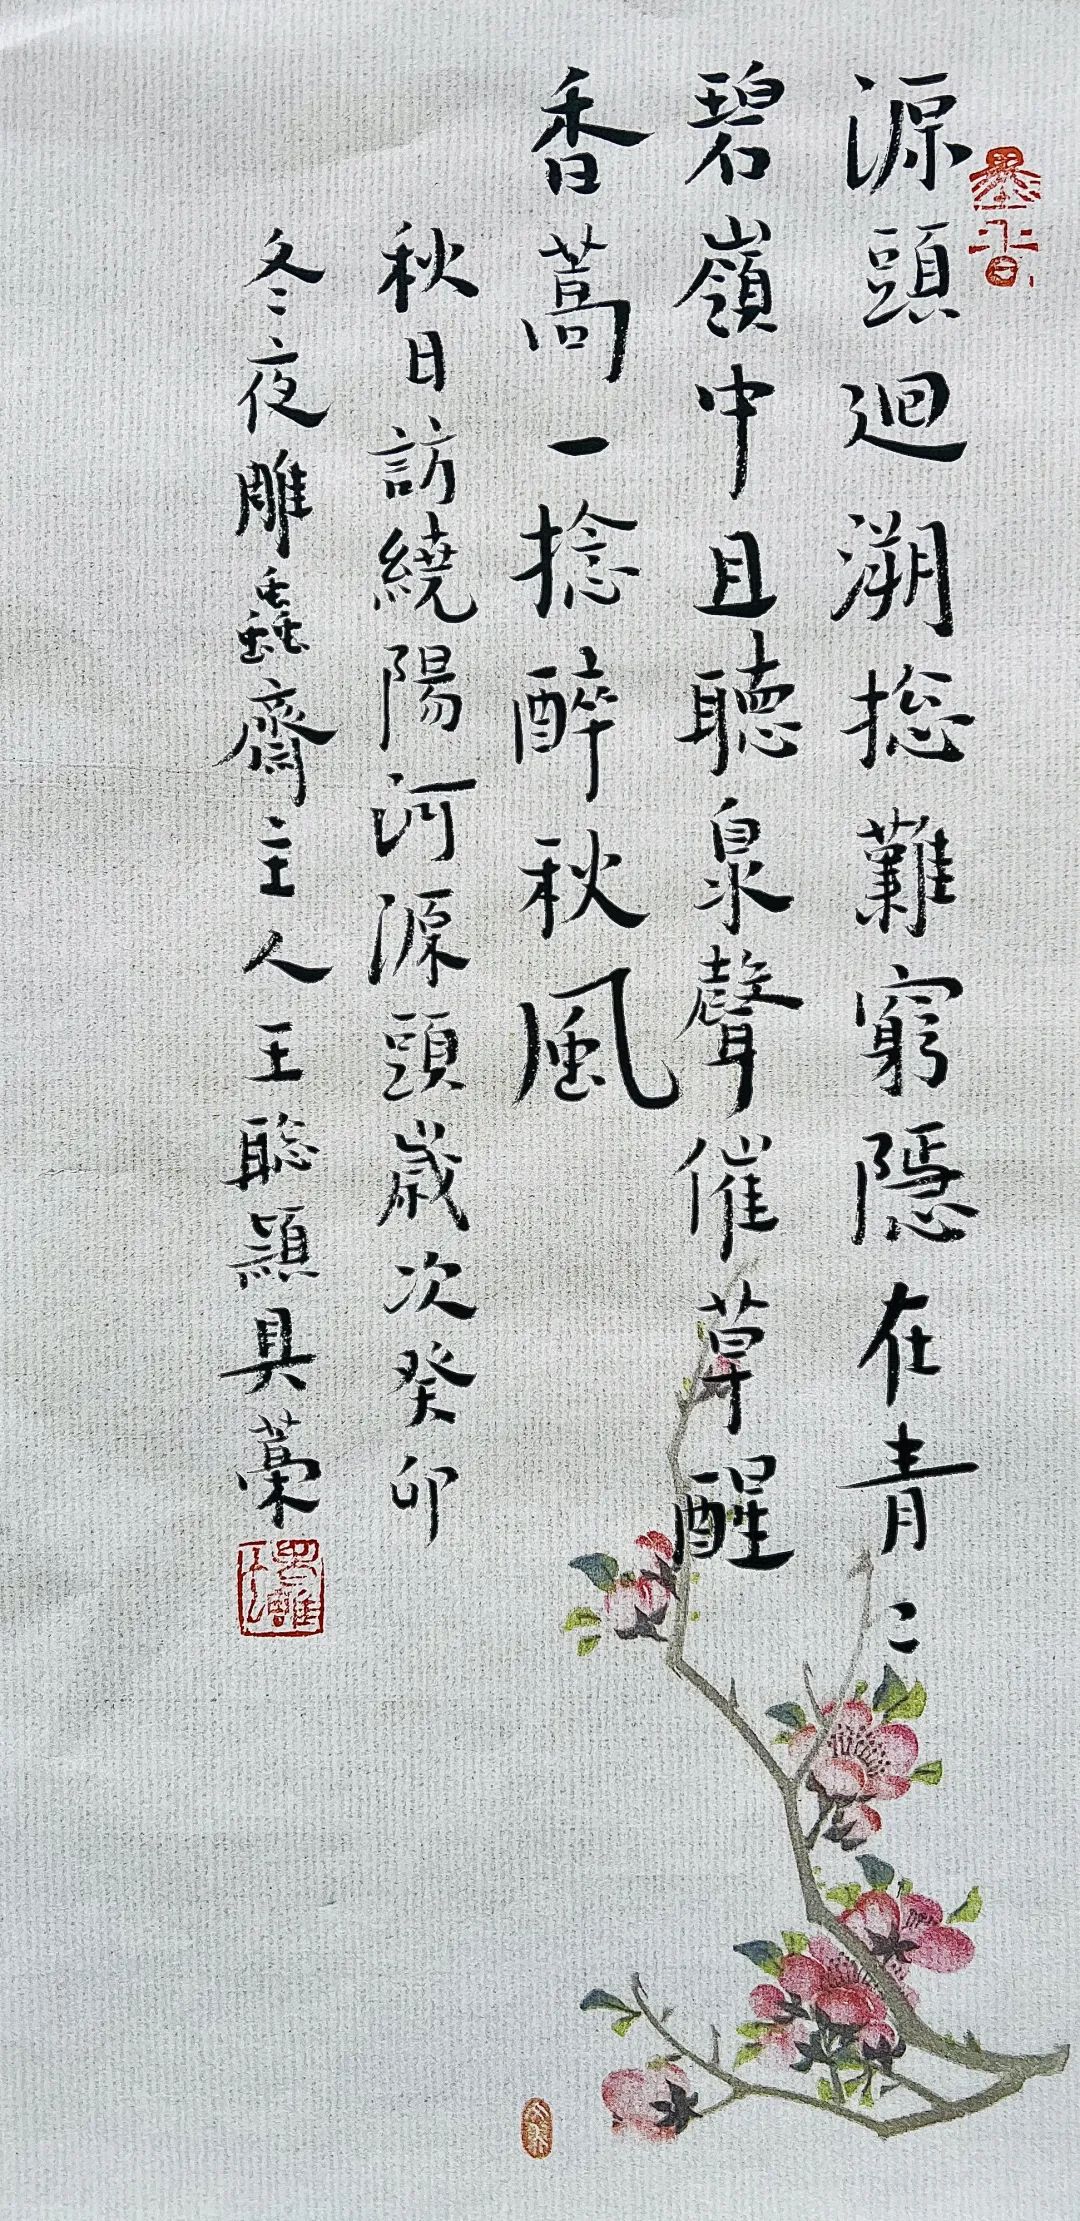 源頭迴溯捴難窮隱在青〻
碧嶺中且聽泉聲催草醒
香蒿一捻醉秋風
秋日訪繞陽河源頭歲次癸卯
冬夜雕蟲齋主人王聰穎具藁
墨香